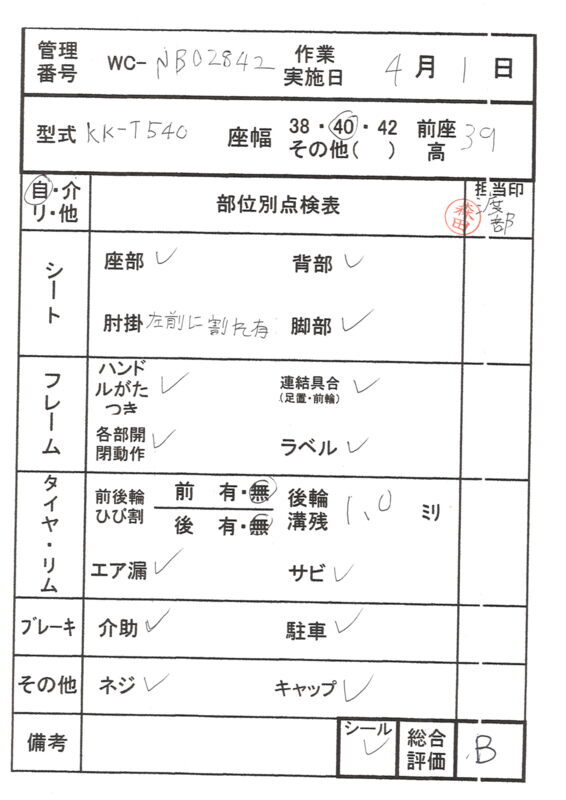 管理番号 WC-NB02842 作業実施日 4月1日
型式 KK-T540 座幅 38・40・42 その他( ) 前座高 39
自・介リ・他 部位別点検表 担当印 森田 渡部
シート 座部 ✓ 背部 ✓
肘掛 左前に割れ有 脚部 ✓
フレーム ハンドルがたつき ✓ 連結具合(足置・前輪) ✓
各部開閉動作 ✓ ラベル ✓
タイヤ・リム 前後輪ひび割 前 有・無 後輪溝残 1.0 ミリ
後 有・無
エア漏 ✓ サビ ✓
ブレーキ 介助 ✓ 駐車 ✓
その他 ネジ ✓ キャップ ✓
備考 シール ✓ 総合評価 B